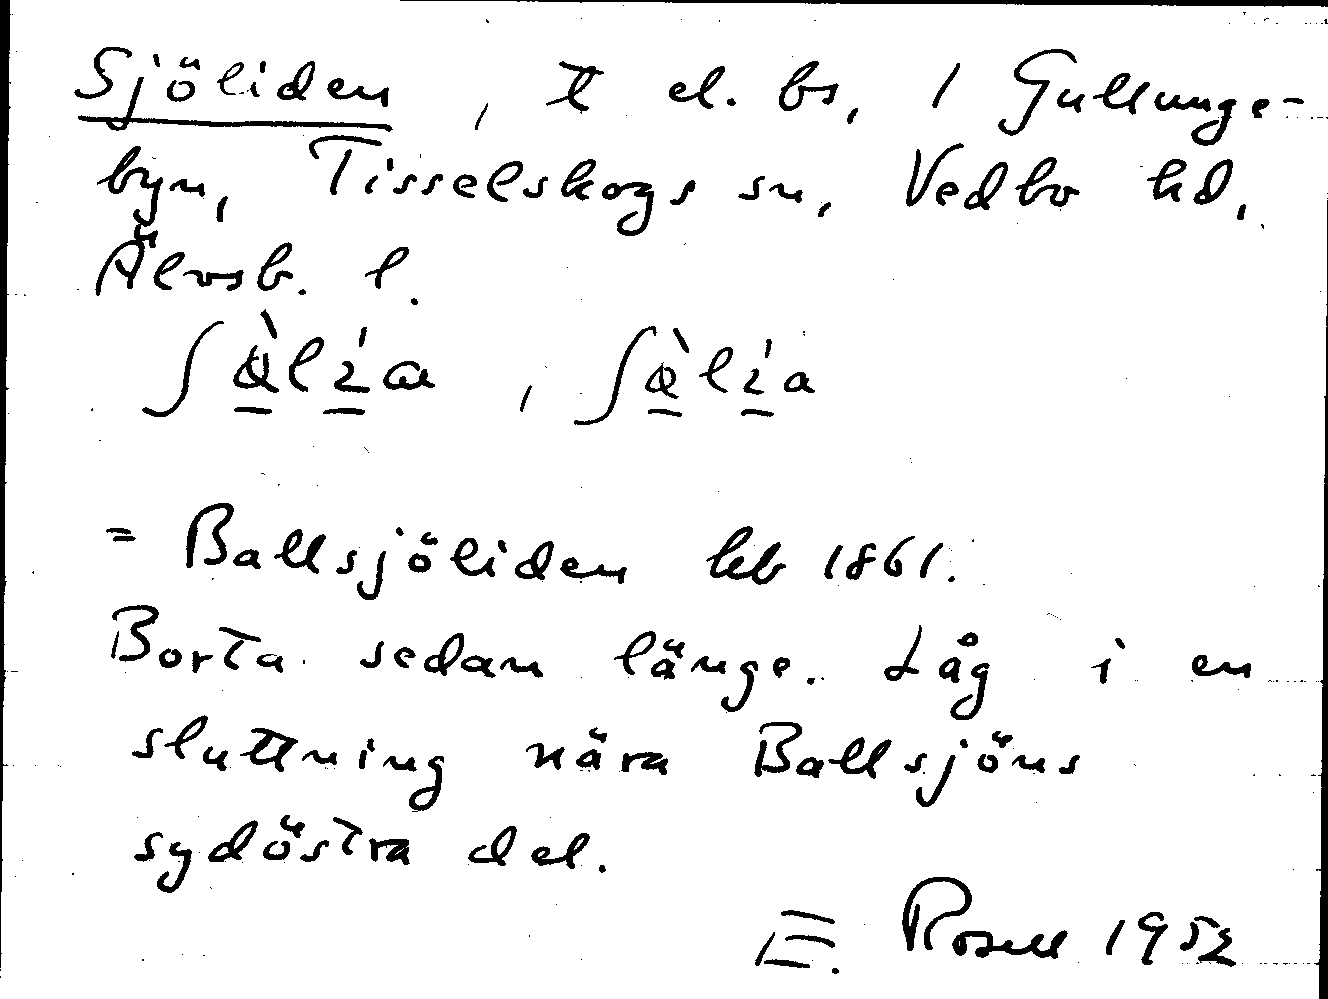 Sjöliden, t el. bs, 1 Gullunge-
byn, Tisselskogs sn, Vedbo hd,
Älvsb. l.
= Ballsjöliden hb 1861.
Borta sedan länge. Låg i en
sluttning nära Ballsjöns
sydöstra del.
E. Rosell 1952